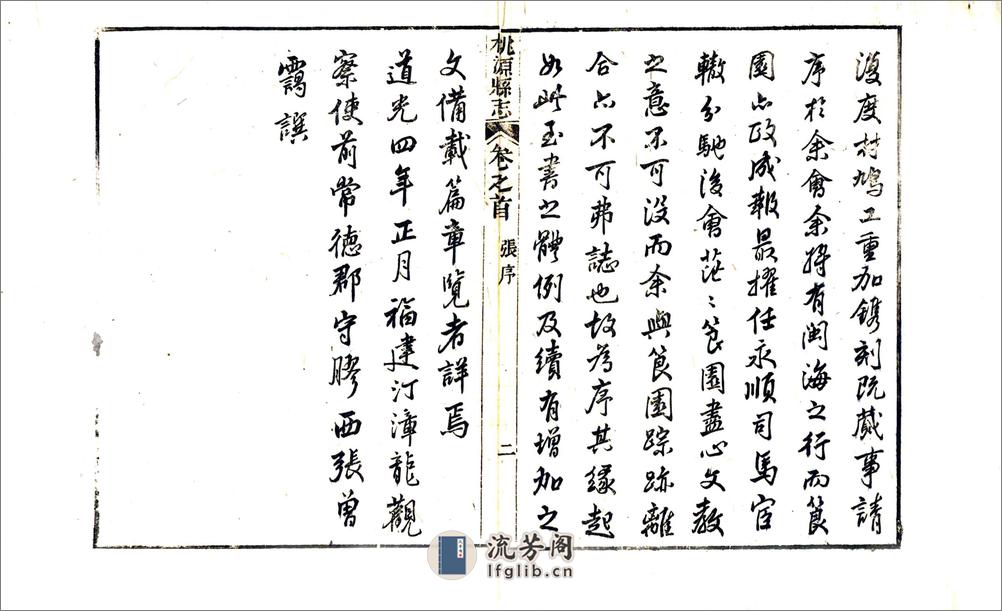 復度材鳩工重加鐫刻既蕆事請
序於余會余將有閩海之行而筤
園亦政成報最擢任永順司馬宦
轍分馳後會茫〻筤園盡心文教
之意不可沒而余與筤園踪跡離
合亦不可弗誌也故為序其緣起
如此至書之體例及續有增加之
桃源縣志
卷之首
張序
二
文備載篇章覽者詳焉
道光四年正月福建汀漳龍觀
察使前常德郡守膠西張曾
靄譔
流芳阁
lfglib.cn